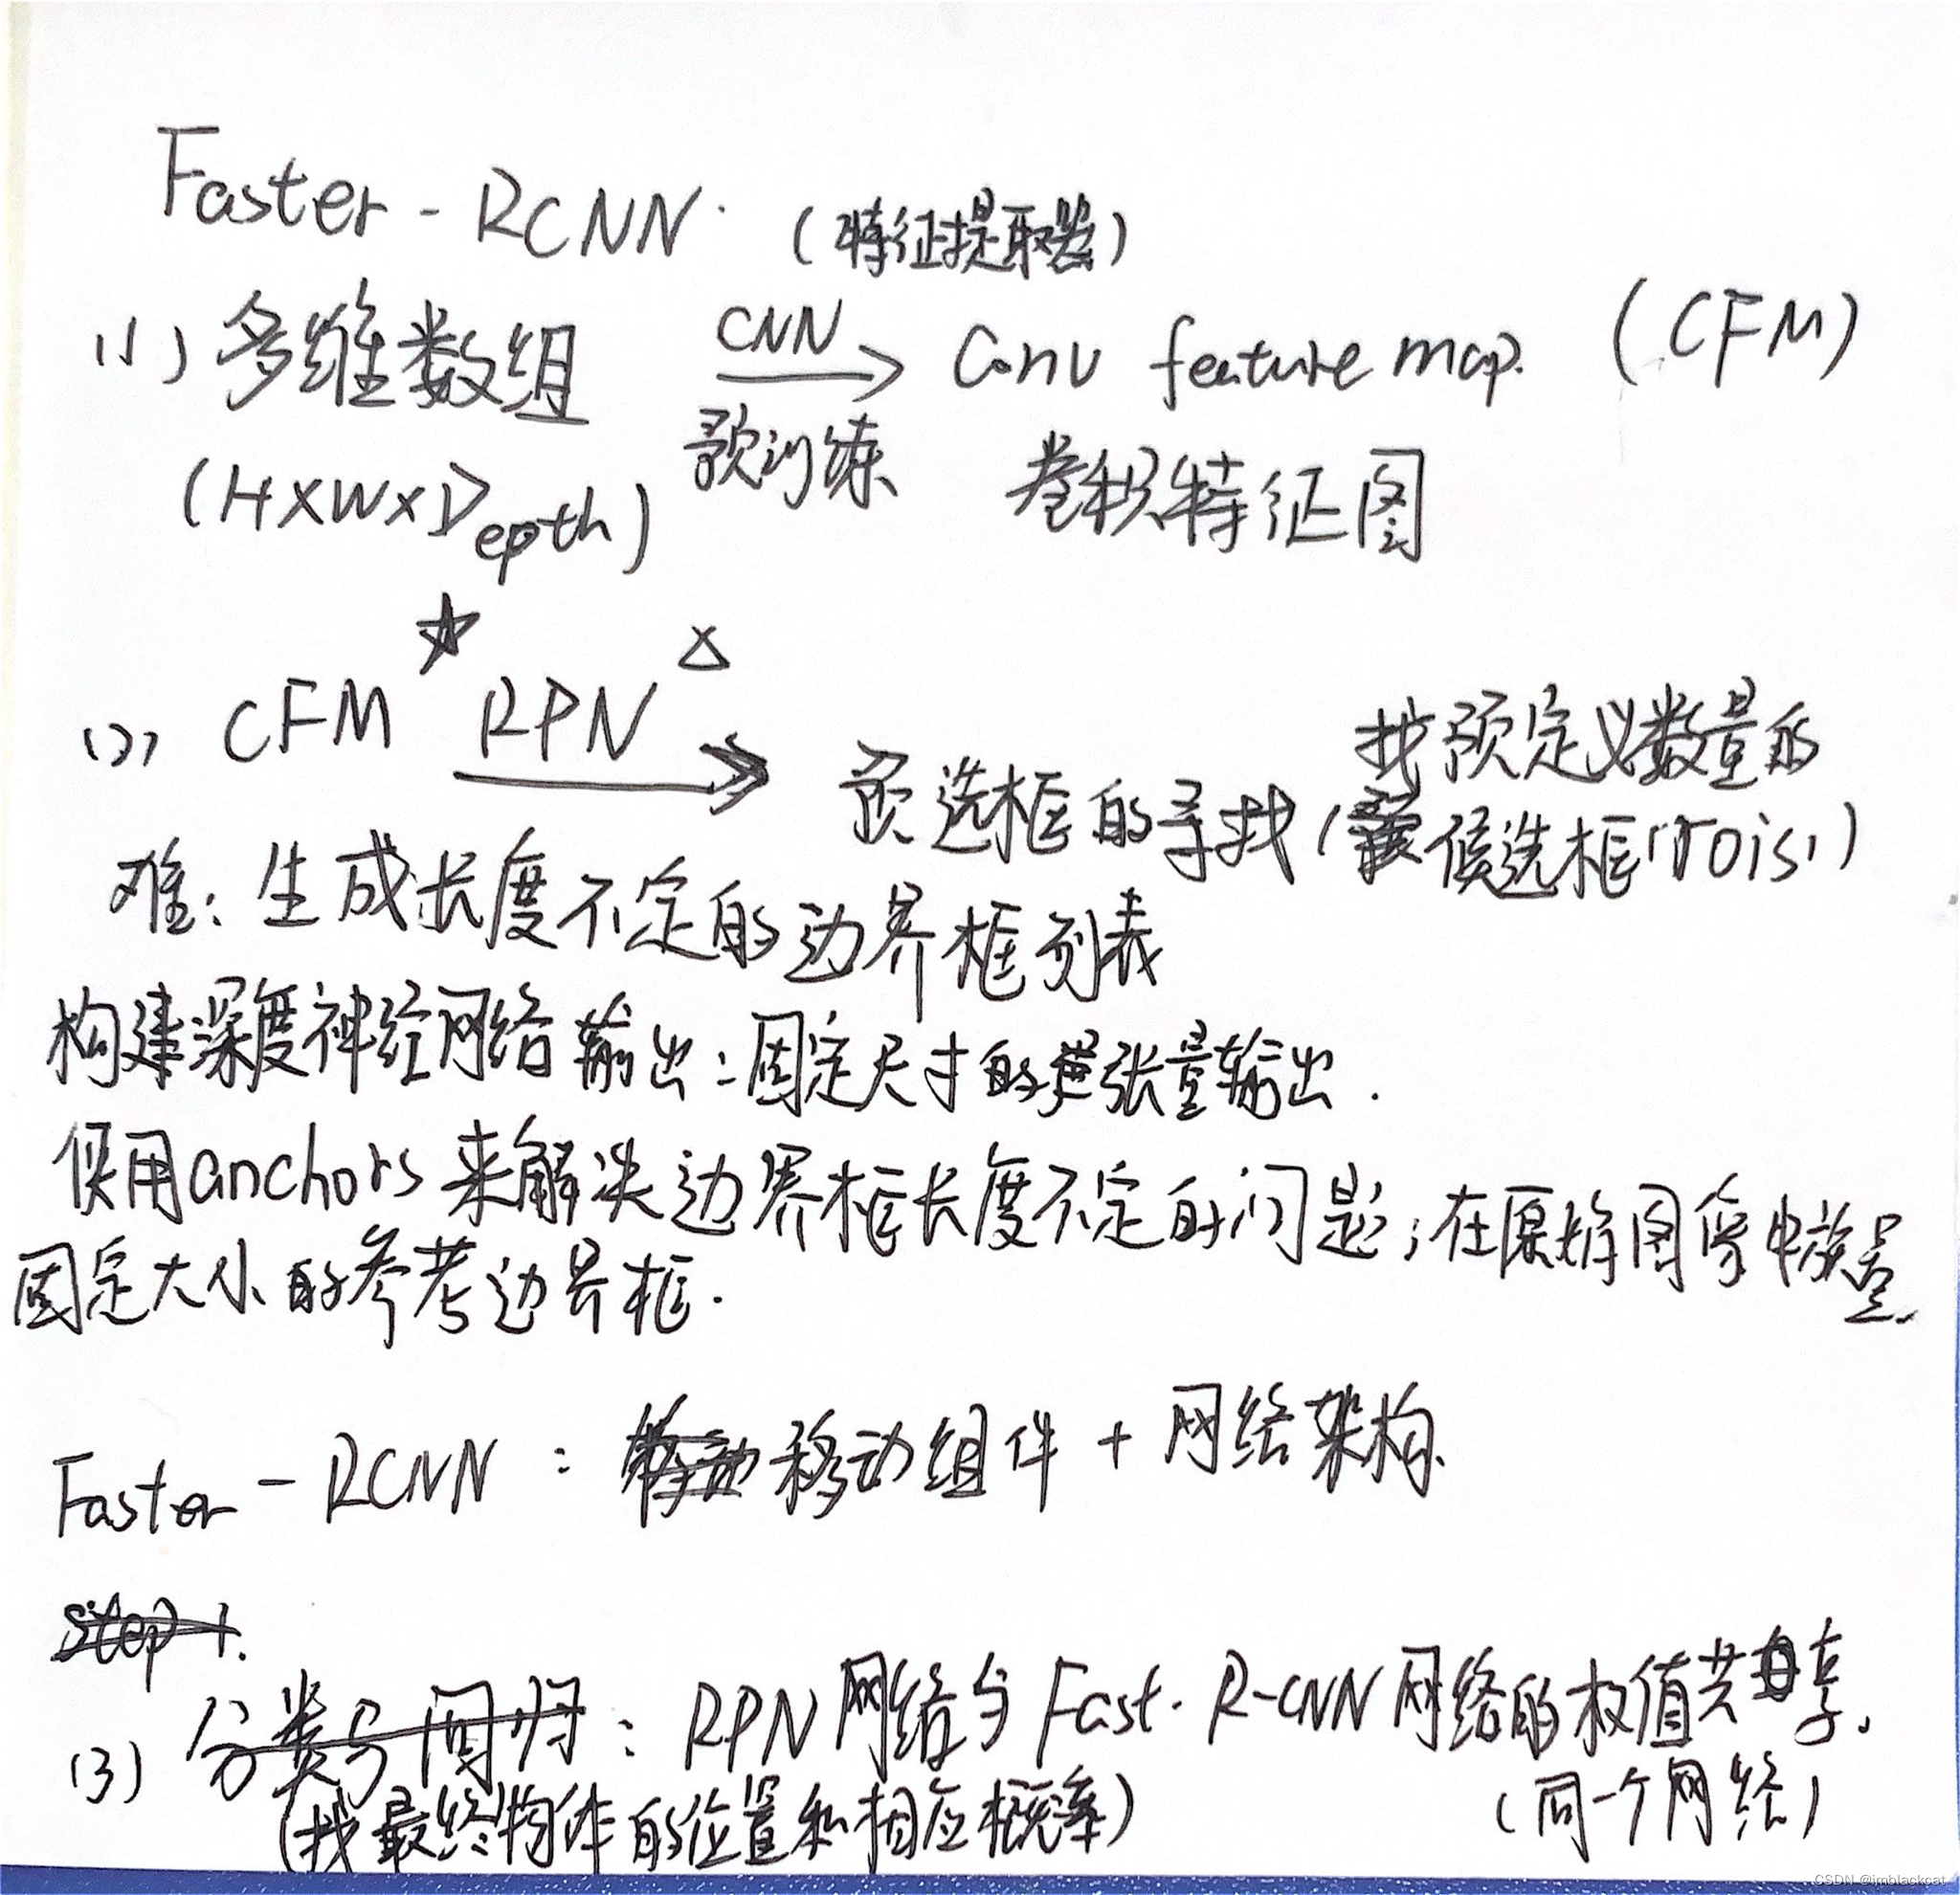 Faster - RCNN.
(特征提取器)
(1) 多维数组 CNN Conv feature map. (CFM)
(H×W×Depth) 预训练 卷积特征图
☆ △
(2) CFM RPN 预选框的寻找 (找预定义数量的
候选框(rois))
难: 生成长度不定的边界框列表
构建深度神经网络输出: 固定尺寸的张量输出.
使用anchors来解决边界框长度不定的问题; 在原始图像中放置
固定大小的参考边界框.
Faster - RCNN : 移动组件 + 网络架构
step 1.
(3) 分类与回归: RPN网络与Fast. R-CNN网络的权值共享.
(找最终物体的位置和相应概率) (同一个网络)
CSDN @jmblackcat